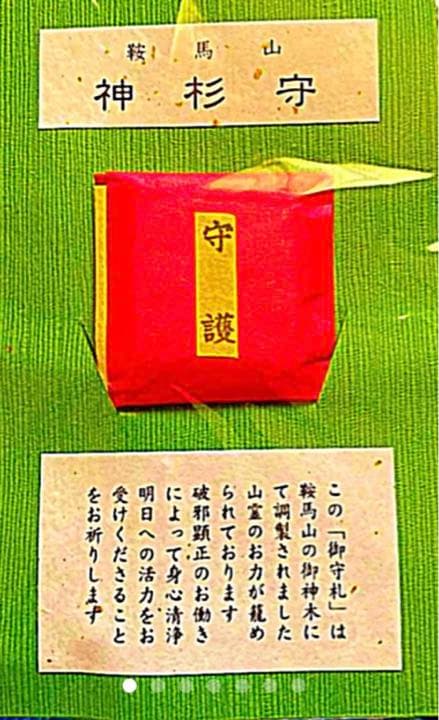 鞍馬山
神杉守
守護
この「御守札」は
鞍馬山の御神木に
て調製されました
山霊のお力が籠め
られております
破邪顕正のお働き
によって身心清浄
明日への活力をお
受けくださること
をお祈りします